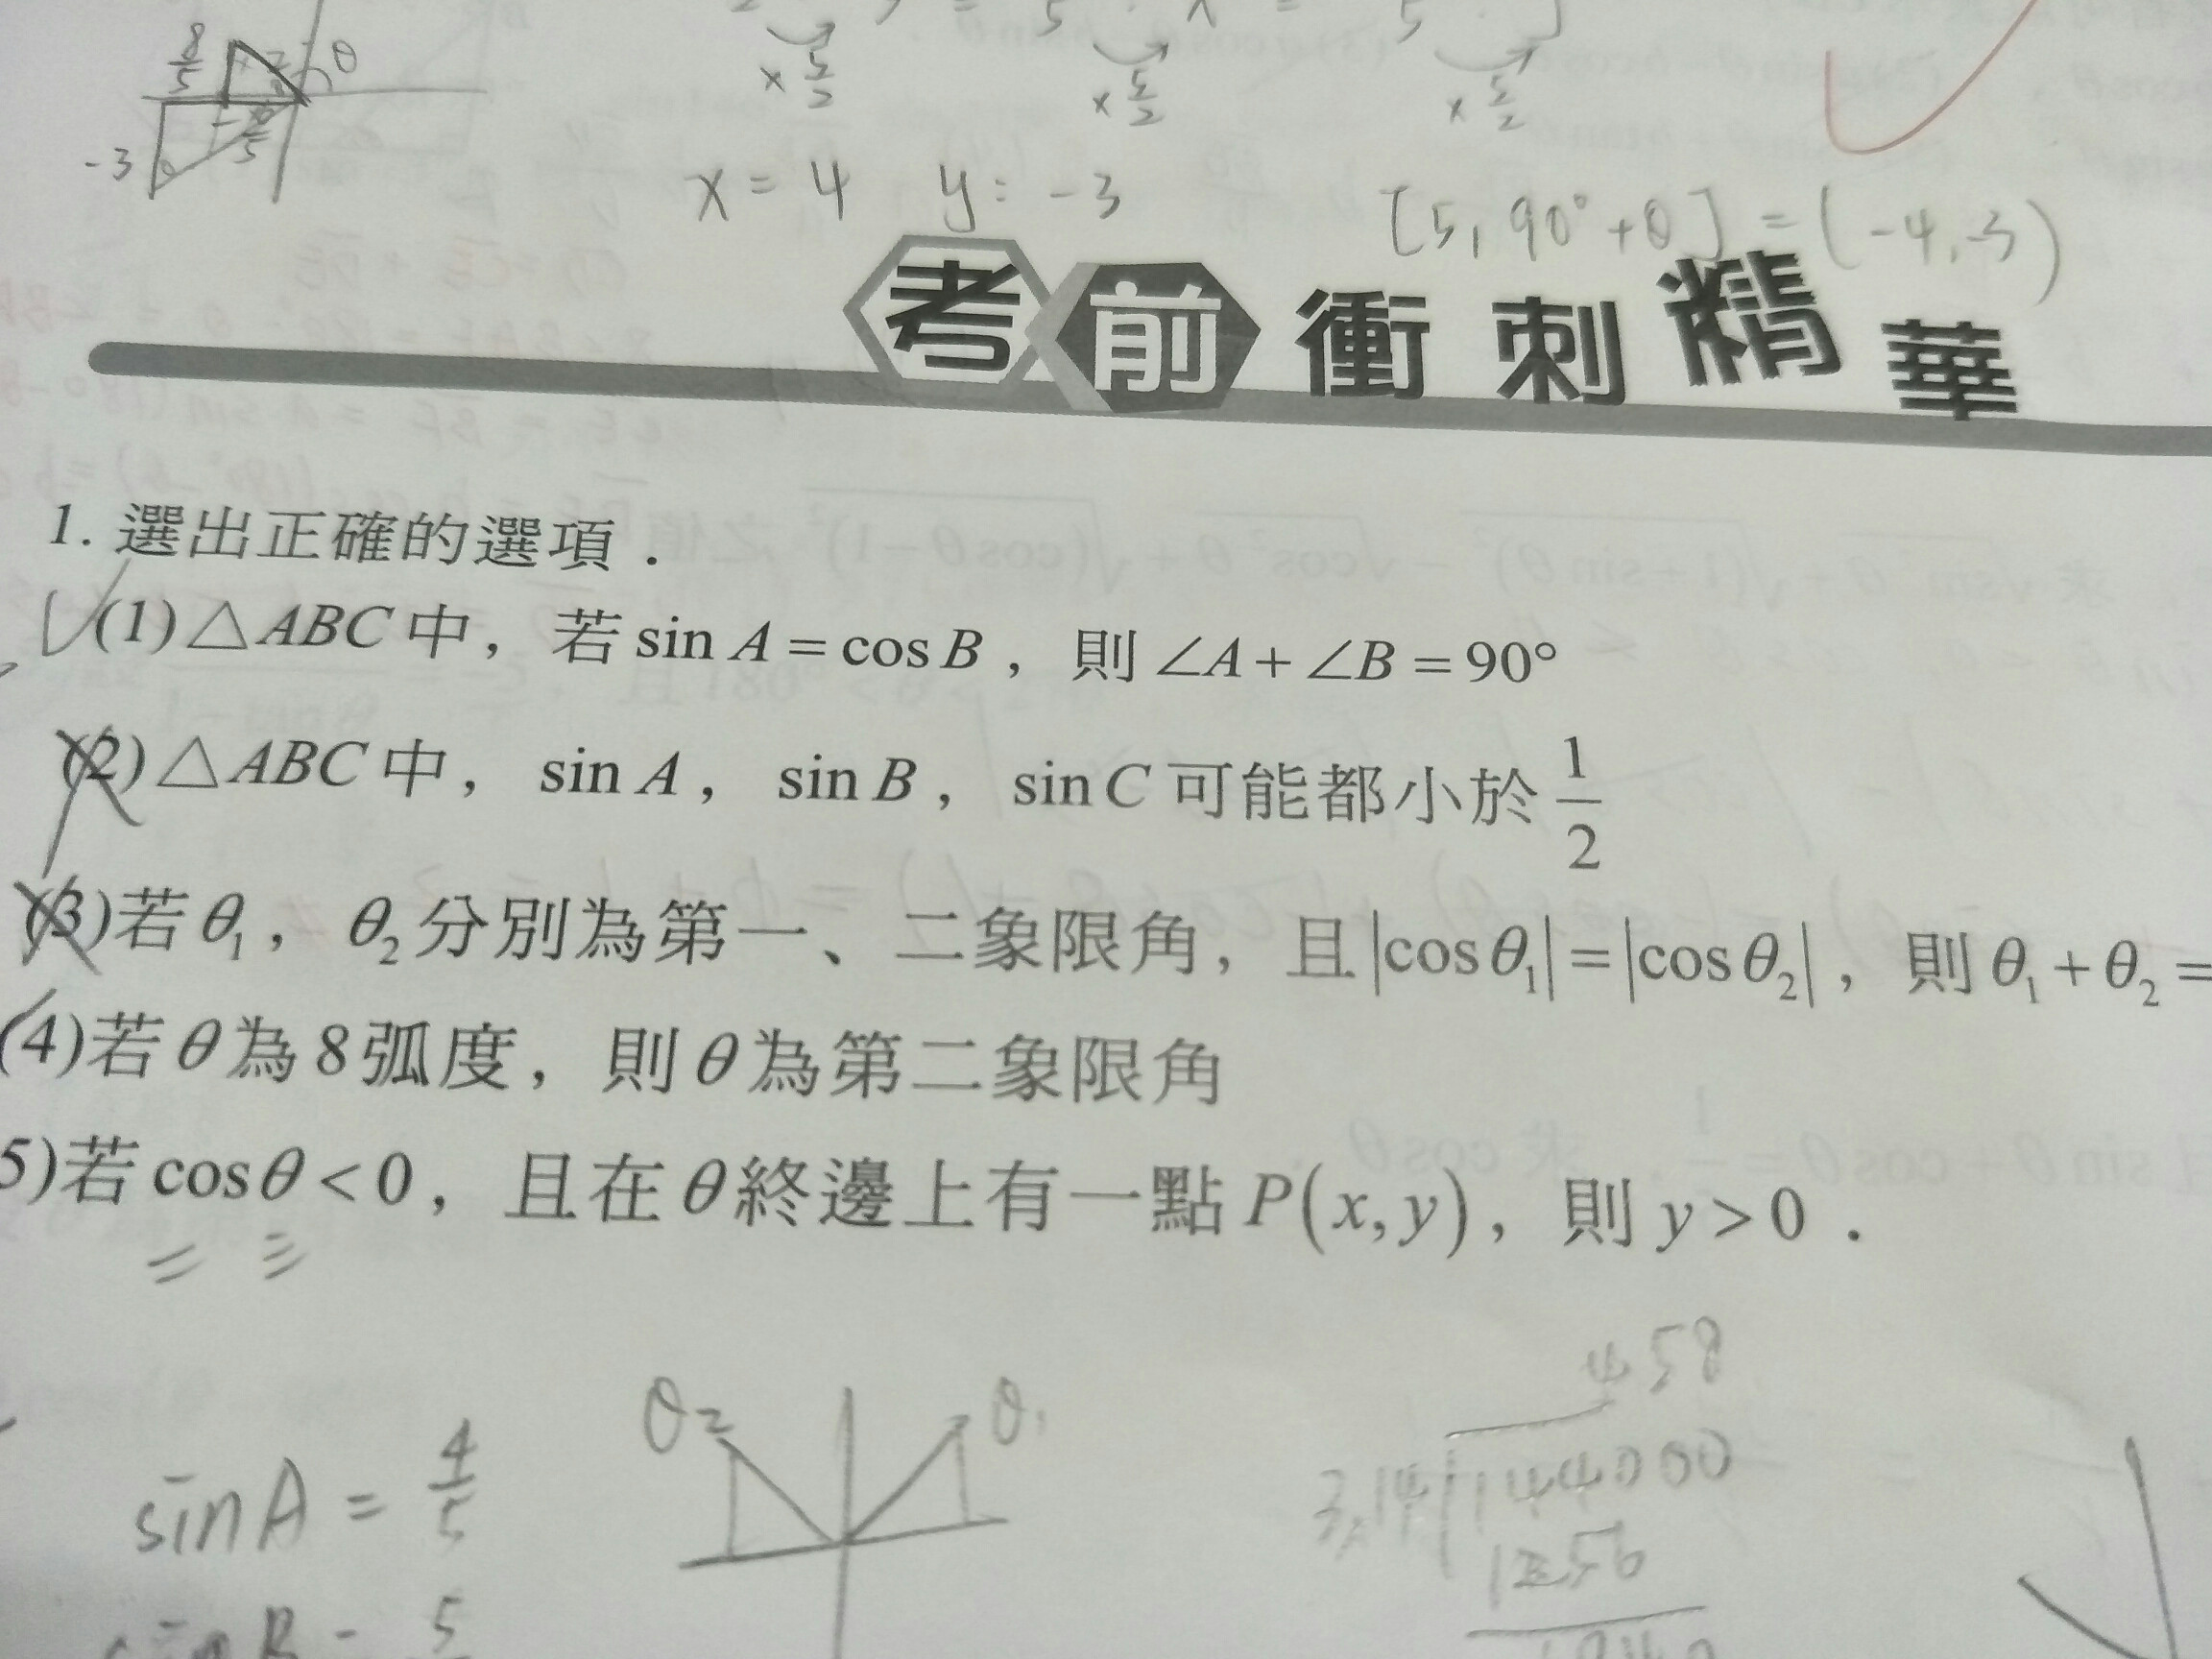 8/5
θ
-3
× 5/2 × 5/2 × 5/2
x = 4 y = -3 [5, 90°+θ] = (-4,-3)
考前衝刺精華
1. 選出正確的選項．
(1)△ABC中，若sin A = cos B，則∠A+∠B = 90°
(2)△ABC中，sin A，sin B，sin C可能都小於1/2
(3)若θ₁，θ₂分別為第一、二象限角，且|cosθ₁|=|cosθ₂|，則θ₁+θ₂=
(4)若θ為8弧度，則θ為第二象限角
5)若cosθ<0，且在θ終邊上有一點P(x,y)，則y>0．
458
θ₂ θ₁
3.14 144000
sin A = 4/5
1256
sin B = 5